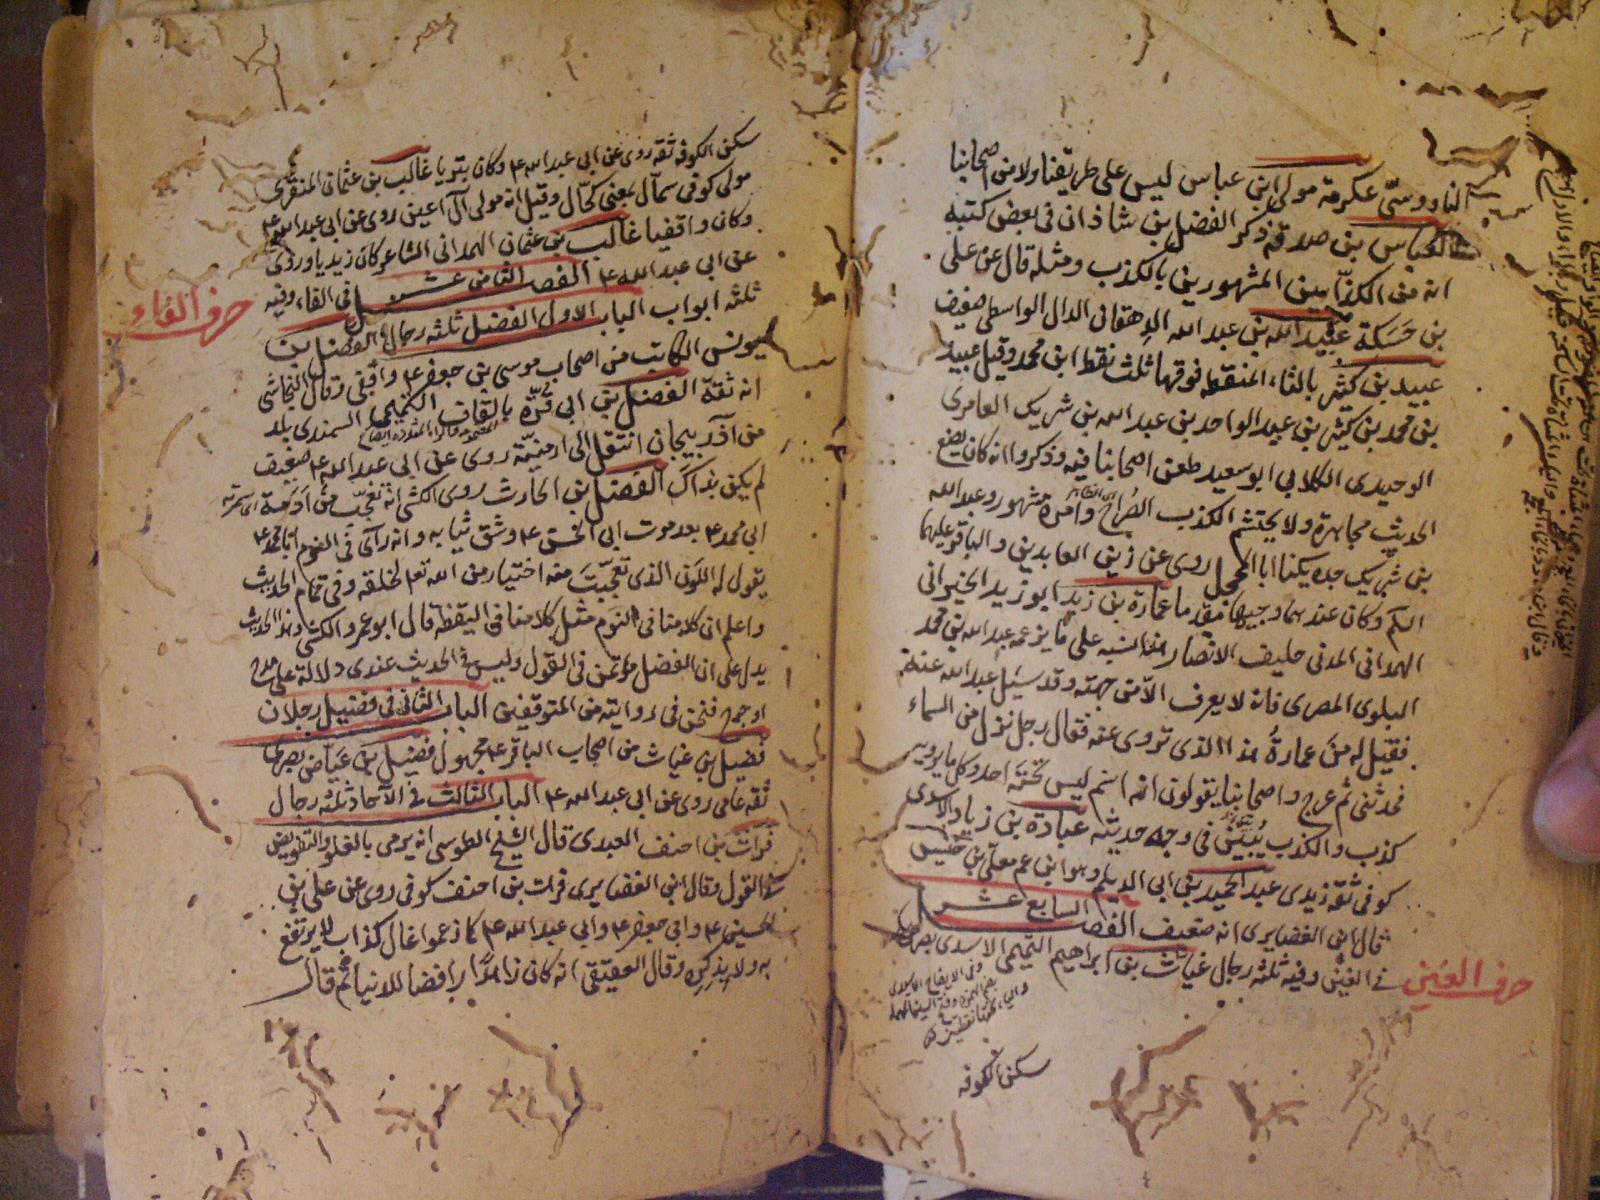 الناووسي عكرمة مولى ابن عباس ليس على طريقنا ولا من اصحابنا
العباس بن صدقة ذكر الفضل بن شاذان في بعض كتبه
انه من الكذابين المشهورين بالكذب ومثله قال عن علي
بن حسكة عبيد الله بن عبد الله الدهقان الدال الواسطي ضعيف
عبيد بن كثير بالثاء المنقطه فوقها ثلث نقط ابن محمد وقيل عبيد
بن محمد بن كثير بن عبد الواحد بن عبد الله بن شريك العامري
الوحيدي الكلابي ابو سعيد طعن اصحابنا فيه وذكروا انه كان يضع
الحديث مجاهرة ولا يحتشم الكذب الصراح وامره مشهور وعبد الله
بن شريك جده يكنا ابا المحجل روى عن زين العابدين والباقر عليهما
السلم وكان عندهما وجيها مقدما عمارة بن زيد ابو زيد الخيواني
الهمداني المدني حليف الانصار النسبه على ما يزعمه عبد الله بن محمد
البلوي المصري فانه لا يعرف الا من جهته وقد سئل عبد الله عنه
فقيل له من عمارة هذا الذي تروي عنه فقال رجل نزل من السماء
فحدثني ثم عرج واصحابنا يقولون انه اسم ليس تحته احد وكل ما يرويه
كذب والكذب يبين في وجه حديثه عبادة بن زياد الاسدي
كوفي ثقة زيدي عبد الحميد بن ابي الديلم وهو ابن عم معلى بن خنيس
قال ابن الغضايري انه ضعيف الفصل السابع عشر
حرف الغين
في الغين وفيه ثلثه رجال غياث بن ابراهيم التميمي الاسدي بصري
سكن الكوفه
سكن الكوفه ثقه روى عن ابي عبد الله ع وكان بتريا غالب بن عثمان المنقري
مولى كوفي سمال بمعنى كحال وقيل انه مولى آل اعين روى عن ابي عبد الله ع
وكان واقفيا غالب بن عثمان الهمداني الشاعر كان زيديا وروى
عن ابي عبد الله ع الفصل الثامن عشر في الفاء وفيه
حرف الفاء
ثلثه ابواب الباب الاول الفضل ثلثه رجال الفضل بن
يونس الكاتب من اصحاب موسى بن جعفر ع واقفي وقال النجاشي
انه ثقة الفضل بن ابي قرة بالقاف التميمي السمندي بلد
من آذربيجان انتقل الى ارمنية روى عن ابي عبد الله ع ضعيف
لم يكن بذاك الفضل بن الحارث روى الكشي انه تعجب من
ابي محمد ع بعد موت ابي الحسن ع وشق ثيابه وانه رأى في النوم ابا محمد ع
يقول له اللون الذي تعجبت منه اختيار من الله تع لخلقه وفي تمام الحديث
واعلم ان كلامنا في النوم مثل كلامنا في اليقظه قال ابو عمرو الكشي وهذا الحديث
يدل على ان الفضل مؤتمن في القول وليس في الحديث عندي دلالة على مدح
او جرح فنحن في روايته من المتوقفين الباب الثاني في فضيل رجلان
فضيل بن غياث من اصحاب الباقر ع مجهول فضيل بن عياض بصري
ثقه عامي روى عن ابي عبد الله ع الباب الثالث في الآحاد ثلثه رجال
فرات بن احنف العبدي قال الشيخ الطوسي انه يرمى بالغلو والتفويض
في القول وقال ابن الغضايري فرات بن احنف كوفي روى عن علي بن
الحسين ع وابي جعفر ع وابي عبد الله ع كما زعموا غال كذاب لا يرتفع
به ولا بذكره وقال العقيقي انه كان زاهدا رافضا للدنيا ثم قال